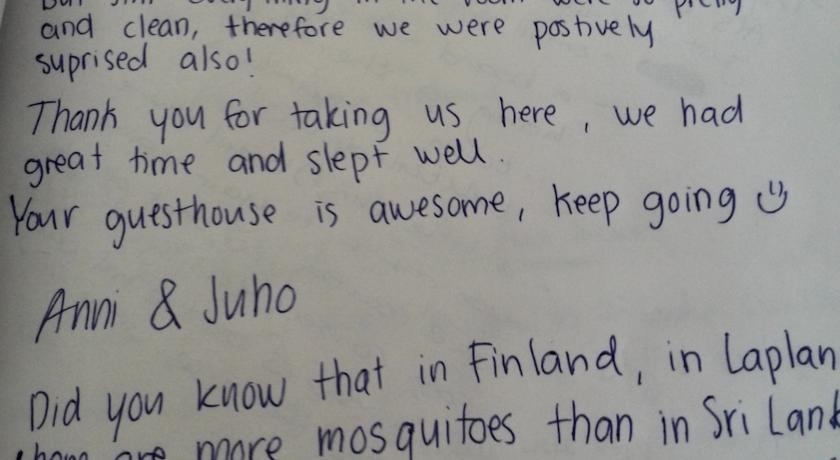 and clean, therefore we were postively
suprised also!
Thank you for taking us here, we had
great time and slept well.
Your guesthouse is awesome, keep going
Anni & Juho
Did you know that in Finland, in Laplan
are more mosquitoes than in Sri Lank